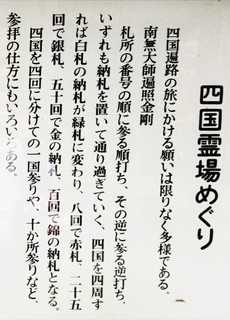 四国霊場めぐり
四国遍路の旅にかける願いは限りなく多様である。
南無大師遍照金剛
札所の番号の順に参る順打ち、その逆に参る逆打ち、
いずれも納札を置いて通り過ぎていく、四国を四周す
れば白札の納札が緑札に変わり、八回で赤札、二十五
回で銀札、五十回で金の納札、百回で錦の納札となる。
四国を四回に分けての一国参りや、十か所参りなど、
参拝の仕方にもいろいろある。